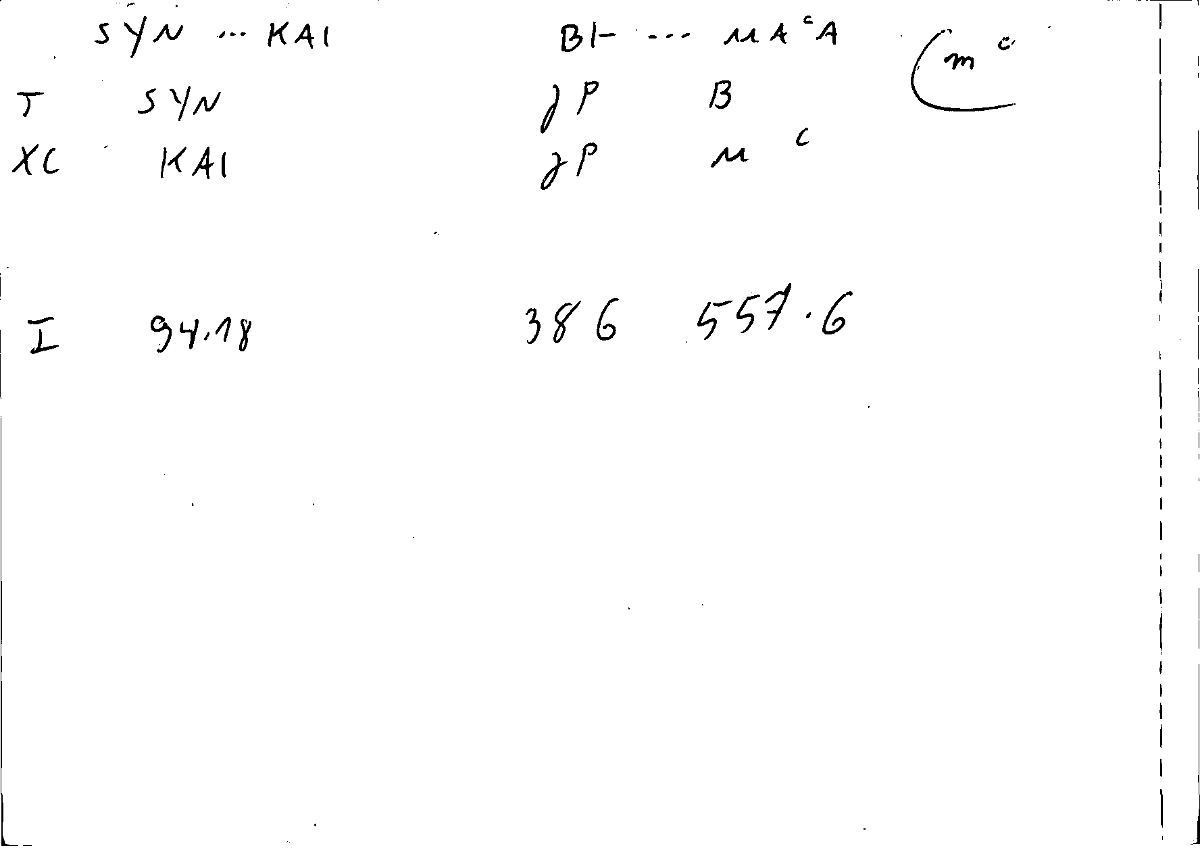 SYN ... KAI BH ... MAᶜA (mᶜ
T SYN γP B
XC KAI γP M ᶜ
I 94.18 386 557.6